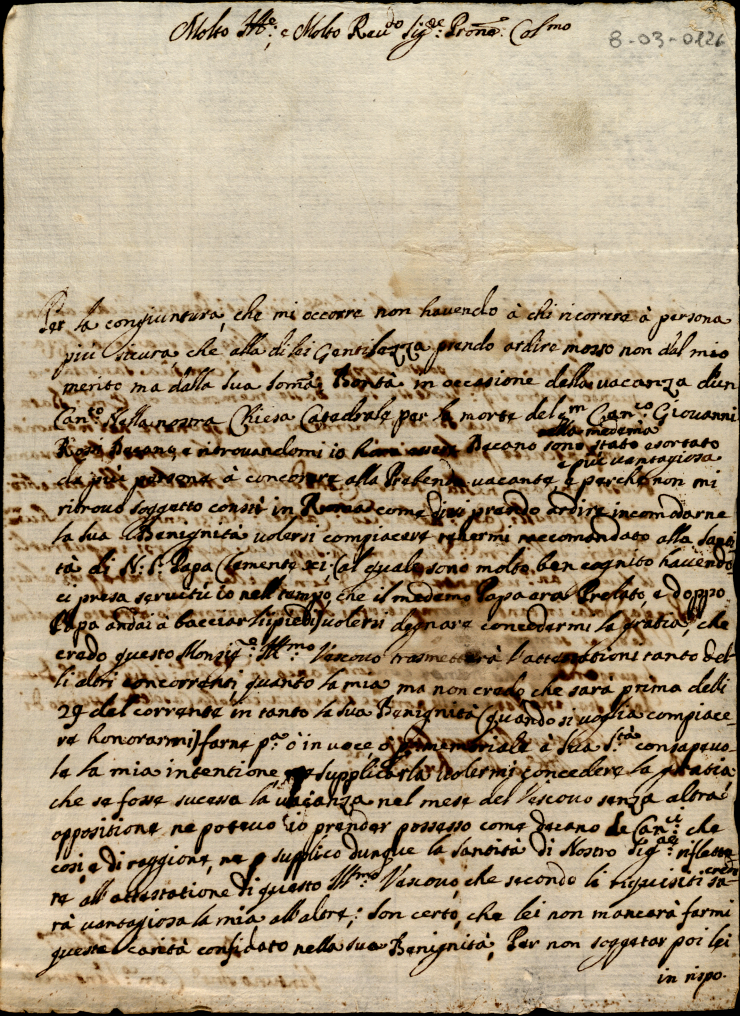 Molto Ill.e: e Molto Reu.do Sig.re: Prone: Cols.mo
8-03-0126
Per la congiuntura, che mi occorre non havendo à chi ricorrere à persona
più sicura, che alla di lei Gentilezza prendo ardire mosso non dal mio
merito ma dalla sua somã Bontà in occasione della vacanza d'un
Can.to nella nostra Chiesa Catedrale per la morte del Can.co Giovanni
alla medema
Rossi Decano, e ritrovandomi io Decano sono stato esortato
e più vantagiosa
da più persone à concorrere alla Prebenda vacante, e perche non mi
ritrovo soggetto costì in Roma come prendo ardire incomodarne
la sua Benignità volersi compiacere raccomandato alla Santi-
tà di N. S. Papa Clemente xi: (al quale sono molto ben cognito havendo
ci presa servitù io nell tempo, che il medemo Papa era Prelato, e doppo
Papa andai a bacciar li piedi) volersi degnare concedermi la gratia, che
credo questo Monsig.re Ill.mo Vescovo trasmetterà l'attestationi tanto del-
li altri concorrenti, quanto la mia ma non credo che sarà prima delli
29 del corrente in tanto la sua Benignità (quando si voglia compiace-
re honorarmi) farne p.a ò in voce ò memoriale à Sua S.tà consapevo-
le la mia intentione supplicarla volermi concedere la gratia,
che se fosse sucessa la vacanza nel mese del Vescovo senza altra
oppositione ne potevo io prender possesso come decano de Can.ci: che
così, e di raggione, ne supplico dunque la Santità di Nostro Sig.re riflette-
re all'attestatione di questo Ill.mo Vescovo, che secondo li riquisiti sa-
credo
rà vantagiosa la mia all'altre; son certo, che lei non mancarà farmi
questa carità confidato nella sua Benignità, Per non soggetar poi lei
in rispo-